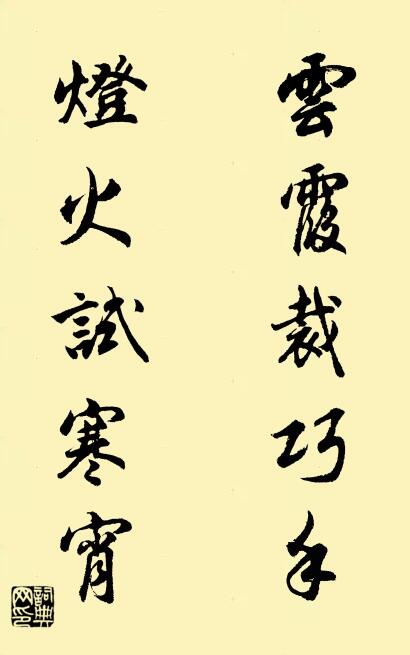 雲霞裁巧手
燈火試寒宵
詞典網印